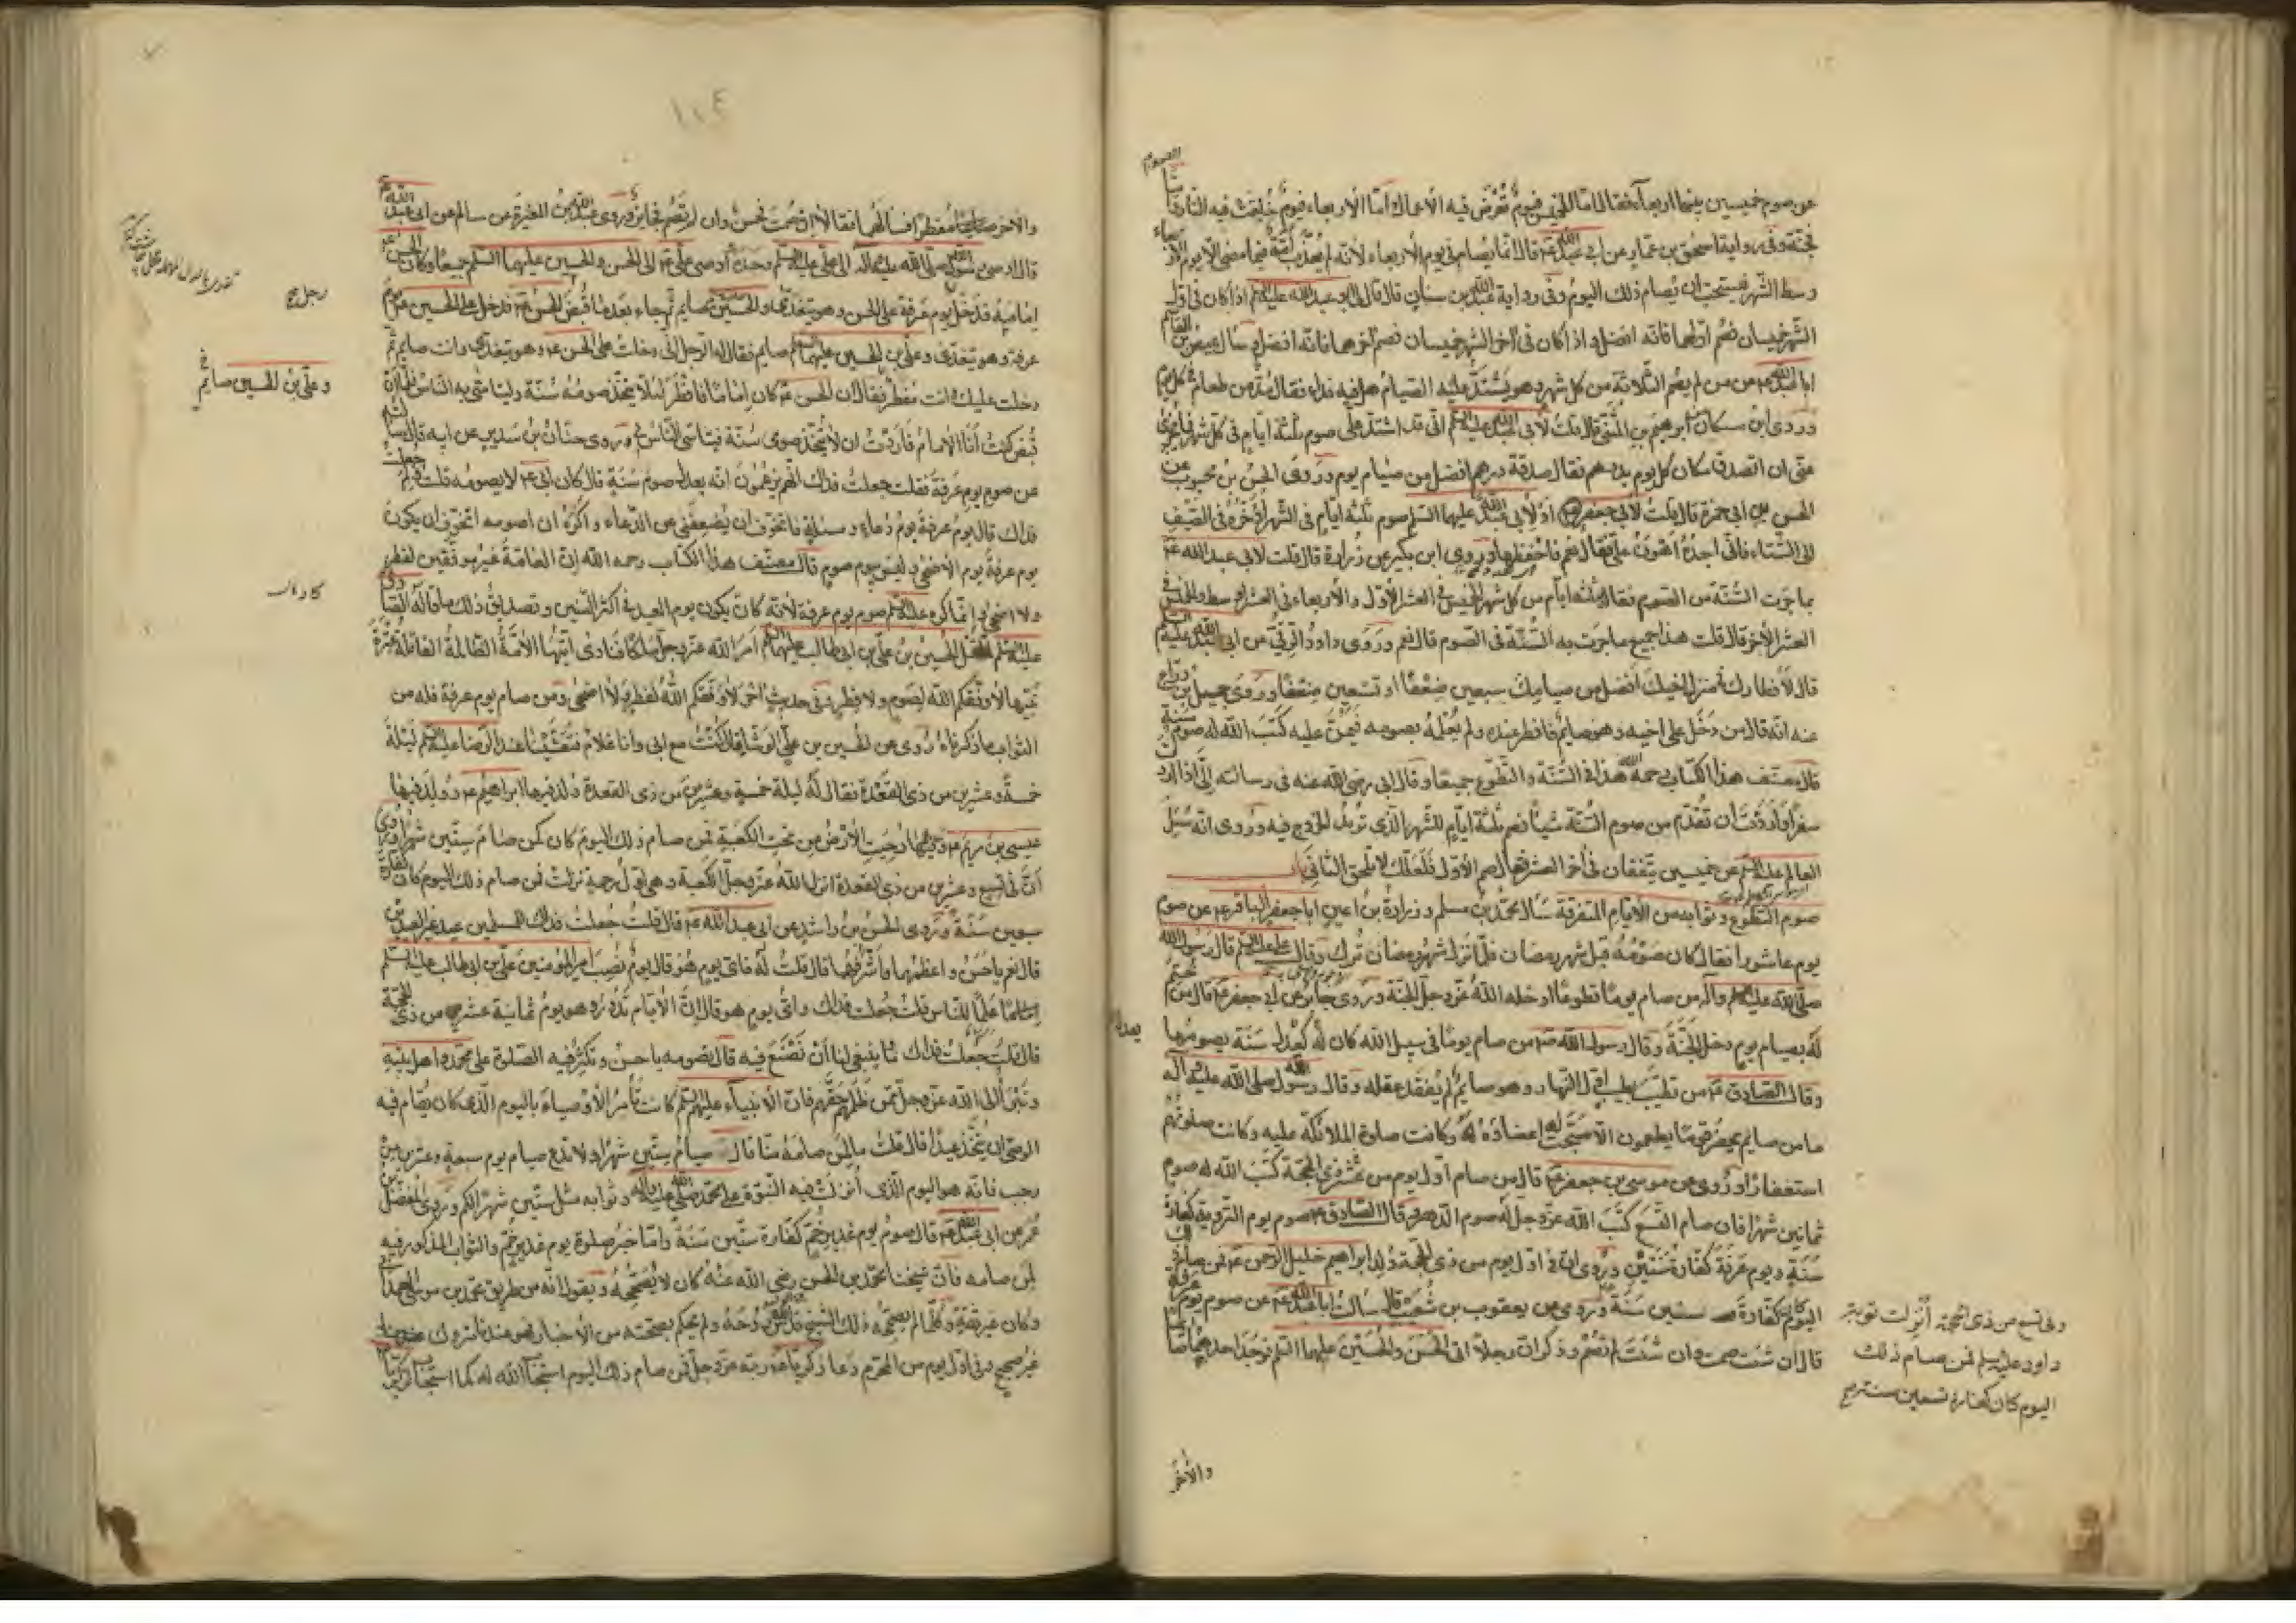 الصوم
عن صوم خميسين بينهما اربعا فقال اما الخميس فيوم تعرض فيه الاعمال واما الأربعاء فيوم خلقت فيه النار واما الصوم
فجنة وفي رواية اسحق بن عمار عن ابي عبد الله ع قال انما يصام في يوم الأربعاء لأنه لم يعذب امة فيما مضى الا يوم الأربعاء
وسط الشهر فيستحب ان يصام ذلك اليوم وفي رواية عبد الله بن سنان قال قال لي ابو عبد الله عليه السلم اذا كان في اول
الشهر خميسان فصم اولهما فانه افضل واذا كان في آخر الشهر خميسان فصم آخرهما فانه افضل وسأل عيص بن القاسم
ابا عبد الله ع عن من لم يصم الثلاثة من كل شهر وهو يشتد عليه الصيام هل فيه فداء فقال مد من طعام في كل يوم
وروى ابن مسكان عن ابرهيم بن المثنى قال قلت لأبي عبد الله عليه السلم اني قد اشتد علي صوم ثلثة ايام في كل شهر فما يجزي
عني ان اتصدق مكان كل يوم بدرهم فقال صدقة درهم افضل من صيام يوم وروى الحسن بن محبوب عن
الحسن بن ابي حمزة قال قلت لأبي جعفر او لأبي عبد الله عليهما السلم صوم ثلثة ايام في الشهر أؤخره في الصيف
الى الشتاء فاني اجده اهون علي فقال نعم فاحفظها وروى ابن بكير عن زرارة قال قلت لابي عبد الله ع
بما جرت السنة من الصوم فقال ثلثة ايام من كل شهر الخميس في العشر الأول والأربعاء في العشر الاوسط والخميس في
العشر الآخر قال قلت هذا جميع ما جرت به السنة في الصوم قال نعم وروى داود الرقي عن ابي عبد الله عليه السلم
قال لافطارك في منزل اخيك افضل من صيامك سبعين ضعفا او تسعين ضعفا وروى جميل بن دراج
عنه انه قال من دخل على اخيه وهو صايم فافطر عنده ولم يعلمه بصومه فيمن عليه كتب الله له صوم سنة
قال مصنف هذا الكتاب رحمه الله هذا في السنة والتطوع جميعا وقال ابي رضي الله عنه في رسالته الي اذا اردت
سفرا واردت ان تقدم من صوم السنة شيئا فصم ثلثة ايام للشهر الذي تريد الخروج فيه وروى انه سئل
العالم عليه السلم عن خميسين يتفقان في آخر العشر فقال صم الأول فلعلك لا تلحق الثاني
صوم التطوع وثوابه من الأيام المتفرقة سأل محمد بن مسلم وزرارة بن اعين ابا جعفر الباقر ع عن صوم
يوم عاشورا فقال كان صومه قبل شهر رمضان فلما نزل شهر رمضان ترك وقال علي عليه السلم قال رسول الله
صلى الله عليه وآله من صام يوما تطوعا ادخله الله عز وجل الجنة وروى جابر عن ابي جعفر ع قال من ختم
له بصيام يوم دخل الجنة وقال رسول الله ص من صام يوما في سبيل الله كان له كعدل سنة يصومها
وقال الصادق ع من تطيب بطيب اول النهار وهو صايم لم يفقد عقله وقال رسول الله صلى الله عليه وآله
ما من صايم يحضر قوما يطعمون الا سبحت له اعضاؤه وكانت صلوة الملائكة عليه وكانت صلوتهم
استغفارا وروى عن موسى بن جعفر ع قال من صام اول يوم من عشر ذي الحجة كتب الله له صوم
ثمانين شهرا فان صام التسع كتب الله عز وجل له صوم الدهر وقال الصادق ع صوم يوم التروية كفارة
سنة ويوم عرفة كفارة سنتين وروى ان في اول يوم من ذي الحجة ولد ابراهيم خليل الرحمن ع فمن صام ذلك
اليوم كان كفارة ستين سنة وروى عن يعقوب بن شعيب قال سألت ابا عبد الله ع عن صوم يوم عرفة
قال ان شئت صمت وان شئت لم تصم وذكر ان رجلا اتى الحسن والحسين عليهما السلم فوجد احدهما صائما
وفي تسع من ذي الحجة انزلت توبة
داود عليه السلم فمن صام ذلك
اليوم كان كفارة تسعين سنة صح
والآخر
١٠٤
والاخر مفطرا فسألهما فقالا ان صمت فحسن وان لم تصم فجايز وروى عبد الله بن المغيرة عن سالم عن ابي عبد الله ع
قال اوصى رسول الله صلى الله عليه وآله الى علي عليه السلم وحده واوصى علي ع الى الحسن والحسين عليهما السلم جميعا وكان الحسن ع
امامه فدخل يوم عرفة على الحسن وهو يتغدى والحسين صايم ثم جاء بعدما قبض الحسن ع فدخل على الحسين ع يوم
عرفة وهو يتغدى وعلي بن الحسين عليهما السلم صايم فقال له الرجل اني دخلت على الحسن ع وهو يتغدى وانت صايم ثم
دخلت عليك وانت مفطر فقال ان الحسن ع كان اماما فافطر لئلا يتخذ صومه سنة وليتأسى به الناس فلما ان
قبض كنت انا الامام فاردت ان لا يتخذ صومي سنة فيتأسى الناس بي وروى حنان بن سدير عن ابيه قال سألته
عن صوم يوم عرفة فقلت جعلت فداك انهم يزعمون انه يعدل صوم سنة قال كان ابي ع لا يصومه قلت ولم جعلت
فداك قال يوم عرفة يوم دعاء ومسئلة فاتخوف ان يضعفني عن الدعاء واكره ان اصومه اتخوف ان يكون
يوم عرفة يوم الأضحى وليس بيوم صوم قال مصنف هذا الكتاب رحمه الله ان العامة غير موفقين لفطر
ولا اضحى وانما كره عليه السلم صوم يوم عرفة لأنه كان يكون يوم العيد في اكثر السنين وتصديق ذلك ما قاله الصادق
عليه السلم لما قتل الحسين بن علي بن ابي طالب عليهما السلم امر الله عز وجل ملكا فنادى ايتها الأمة الظالمة القاتلة عترة
نبيها لا وفقكم الله لصوم ولا فطر وفي حديث آخر لا وفقكم الله لفطر ولا اضحى ومن صام يوم عرفة فله من
الثواب ما ذكرناه وروى عن الحسن بن علي الوشا قال كنت مع ابي وانا غلام فتعشينا عند الرضا عليه السلم ليلة
خمسة وعشرين من ذي القعدة فقال له ليلة خمسة وعشرين من ذي القعدة ولد فيها ابراهيم ع وولد فيها
عيسى بن مريم ع وفيها دحيت الأرض من تحت الكعبة فمن صام ذلك اليوم كان كمن صام ستين شهرا وروى
ان في تسع وعشرين من ذي القعدة انزل الله عز وجل الكعبة وهي اول رحمة نزلت فمن صام ذلك اليوم كان كفارة
سبعين سنة وروى الحسن بن راشد عن ابي عبد الله ع قال قلت جعلت فداك للمسلمين عيد غير العيدين
قال نعم يا حسن واعظمهما واشرفهما قال قلت له فاي يوم هو قال يوم نصب امير المؤمنين علي بن ابي طالب عليه السلم
علما للناس قلت جعلت فداك واي يوم هو قال ان الأيام تدور وهو يوم ثمانية عشر من ذي الحجة
قال قلت جعلت فداك ما ينبغي لنا ان نصنع فيه قال تصومه يا حسن وتكثر فيه الصلوة على محمد واهل بيته
وتبرأ الى الله عز وجل ممن ظلمهم حقهم فان الأنبياء عليهم السلم كانت تأمر الأوصياء باليوم الذي كان يقام فيه
الوصي ان يتخذ عيدا قال قلت ما لمن صامه منا قال صيام ستين شهرا ولا تدع صيام يوم سبعة وعشرين من
رجب فانه هو اليوم الذي انزلت فيه النبوة على محمد صلى الله عليه وآله وثوابه مثل ستين شهرا لكم وروى المفضل بن
عمر عن ابي عبد الله ع قال صوم يوم غدير خم كفارة ستين سنة واما خبر صلوة يوم غدير خم والثواب المذكور فيه
لمن صامه فان شيخنا محمد بن الحسن رضي الله عنه كان لا يصححه ويقول انه من طريق محمد بن موسى الهمداني
وكان غير ثقة وكلما لم يصححه ذلك الشيخ قدس الله روحه ولم يحكم بصحته من الأخبار فهو عندنا متروك
غير صحيح وفي اول يوم من المحرم دعا زكريا ع ربه عز وجل فمن صام ذلك اليوم استجاب الله له كما استجاب لزكريا
رجل صح
وعلي بن الحسين صايم